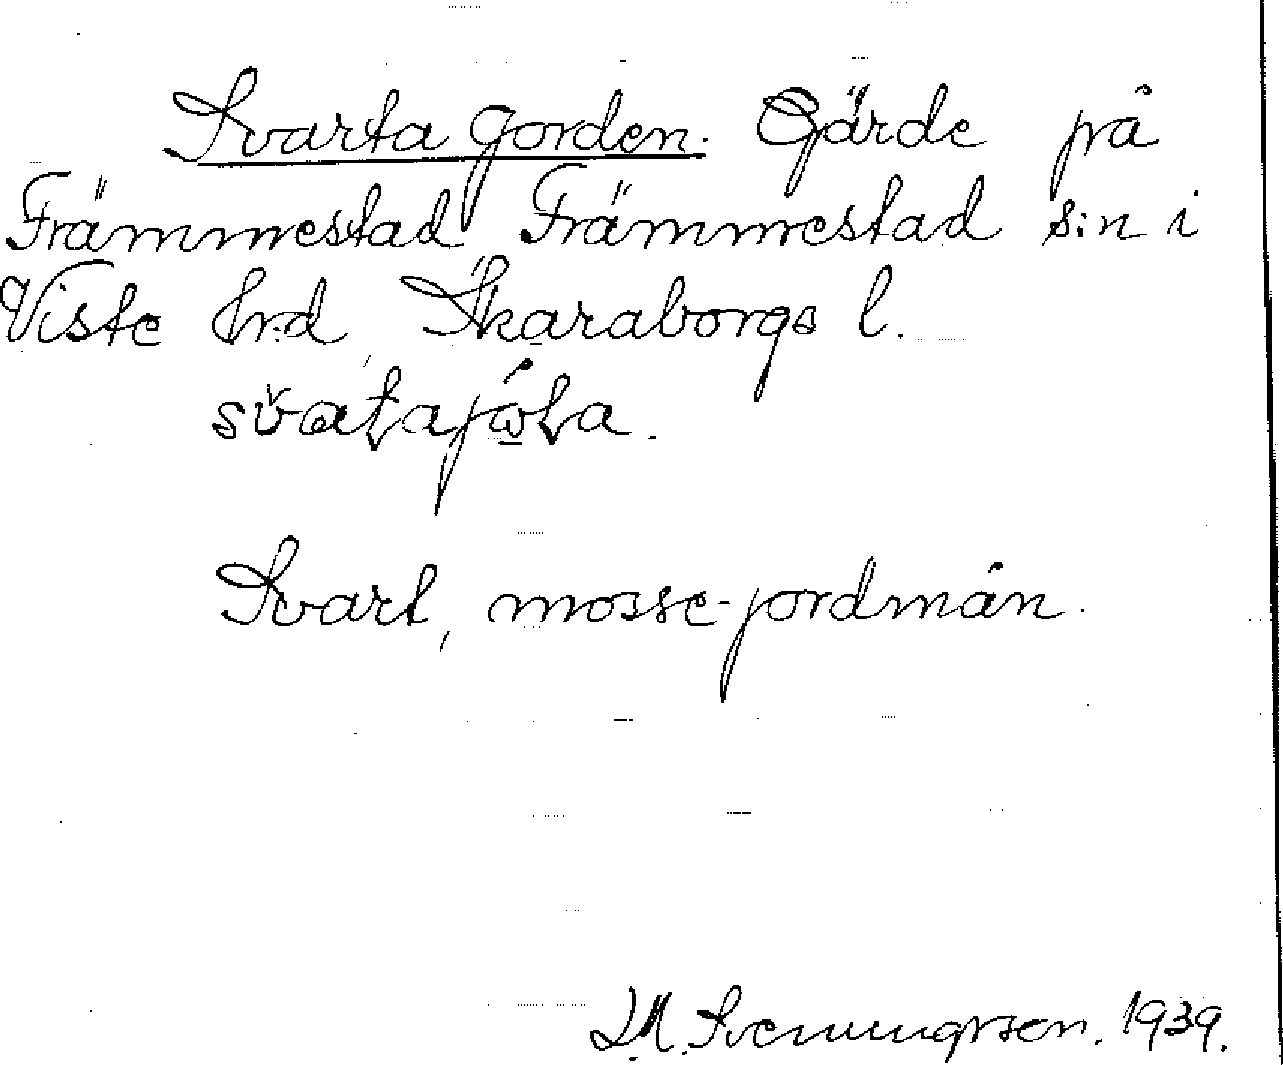 Svarta gorden. Gärde på
Främmestad Främmestad s:n i
Viste hrd Skaraborgs l.
Svart, mosse-jordmån.
J.M. Svenungsson. 1939.